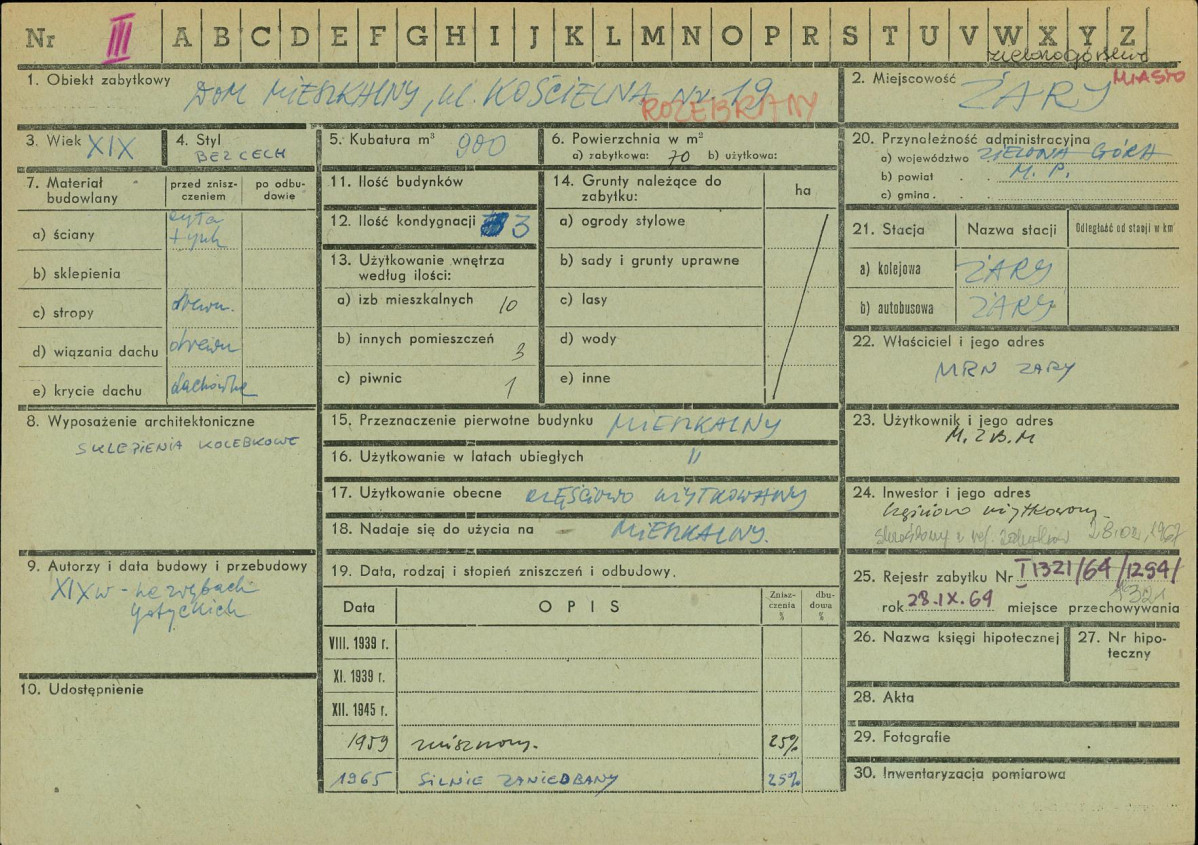 Nr III A B C D E F G H I J K L M N O P R S T U V W X Y Z
zielonogórskie
1. Obiekt zabytkowy DOM MIESZKALNY, ul. KOŚCIELNA Nr 19
ROZEBRANY
2. Miejscowość ŻARY MIASTO
3. Wiek XIX
4. Styl BEZ CECH
5. Kubatura m³ 900
6. Powierzchnia w m²
a) zabytkowa: 70 b) użytkowa:
20. Przynależność administracyjna
a) województwo ZIELONA GÓRA
b) powiat M. P.
c) gmina
7. Materiał budowlany
przed znisz-
czeniem
po odbu-
dowie
a) ściany cegła
tynk
b) sklepienia
c) stropy drewn.
d) wiązania dachu drewn
e) krycie dachu dachówka
11. Ilość budynków
12. Ilość kondygnacji 3
13. Użytkowanie wnętrza
według ilości:
a) izb mieszkalnych 10
b) innych pomieszczeń 3
c) piwnic 1
14. Grunty należące do
zabytku:
ha
a) ogrody stylowe
b) sady i grunty uprawne
c) lasy
d) wody
e) inne
21. Stacja Nazwa stacji Odległość od stacji w km
a) kolejowa ŻARY
b) autobusowa ŻARY
22. Właściciel i jego adres
MRN ŻARY
8. Wyposażenie architektoniczne
SKLEPIENIA KOLEBKOWE
15. Przeznaczenie pierwotne budynku MIESZKALNY
16. Użytkowanie w latach ubiegłych "
17. Użytkowanie obecne CZĘŚCIOWO UŻYTKOWANY
18. Nadaje się do użycia na MIESZKALNY.
23. Użytkownik i jego adres
M. Z B. M
24. Inwestor i jego adres
częściowo użytkowany.
skreślony z rej. zabytków
9. Autorzy i data budowy i przebudowy
XIX w - na zrębach
gotyckich
19. Data, rodzaj i stopień zniszczeń i odbudowy.
Data OPIS Znisz-
czenia
%
dbu-
dowa
%
VIII. 1939 r.
XI. 1939 r.
XII. 1945 r.
1959 zniszczony. 25%
1965 SILNIE ZANIEDBANY 25%
25. Rejestr zabytku Nr I 1321/64/1294/
1321
rok 28.IX.64 miejsce przechowywania
26. Nazwa księgi hipotecznej
27. Nr hipo-
teczny
10. Udostępnienie
28. Akta
29. Fotografie
30. Inwentaryzacja pomiarowa